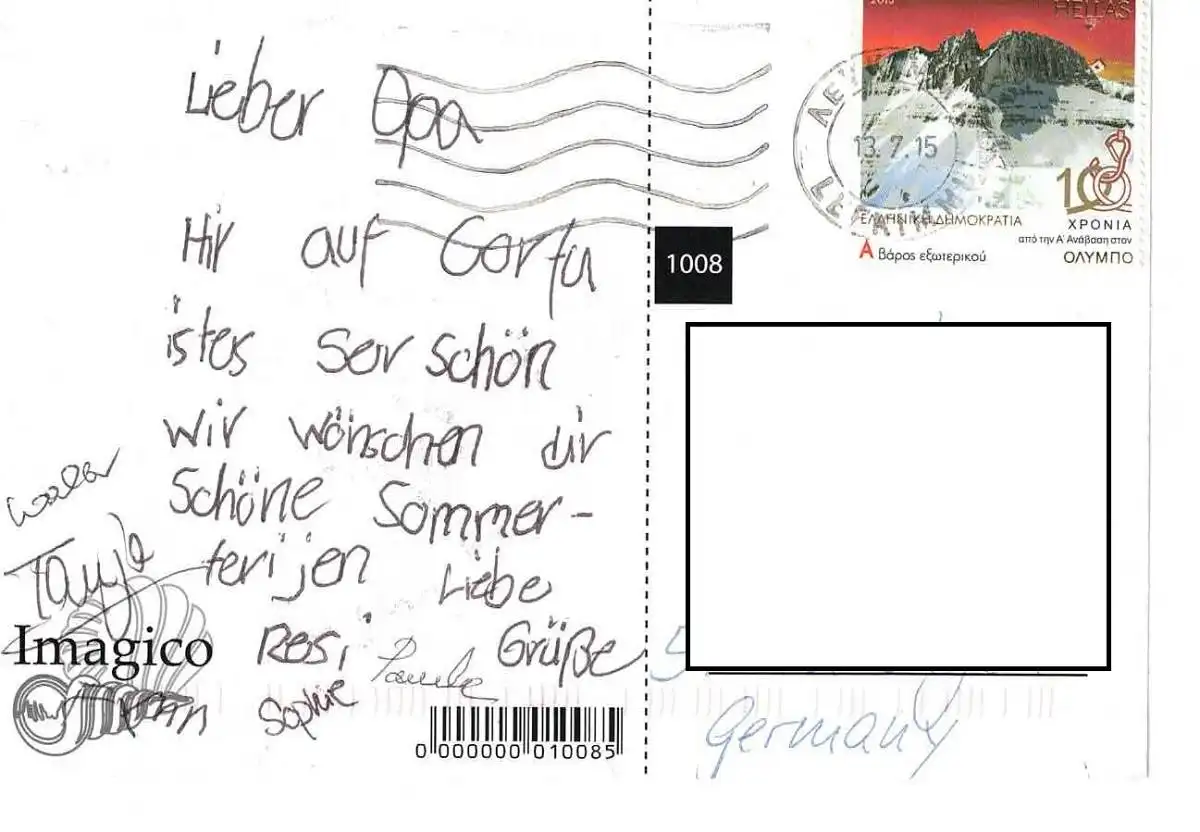 Lieber Opa
Hir auf Corfu
istes Ser schön
wir wönschen dir
Schöne Sommer-
ferijen Liebe
Resi Grüße
Sophie
Tanja
Imagico
0 000000 010085
1008
HELLAS
13.7.15
100
ΕΛΛΗΝΙΚΗ ΔΗΜΟΚΡΑΤΙΑ
ΧΡΟΝΙΑ
από την Α' Ανάβαση στον
ΟΛΥΜΠΟ
Α Βάρος εξωτερικού
Germany